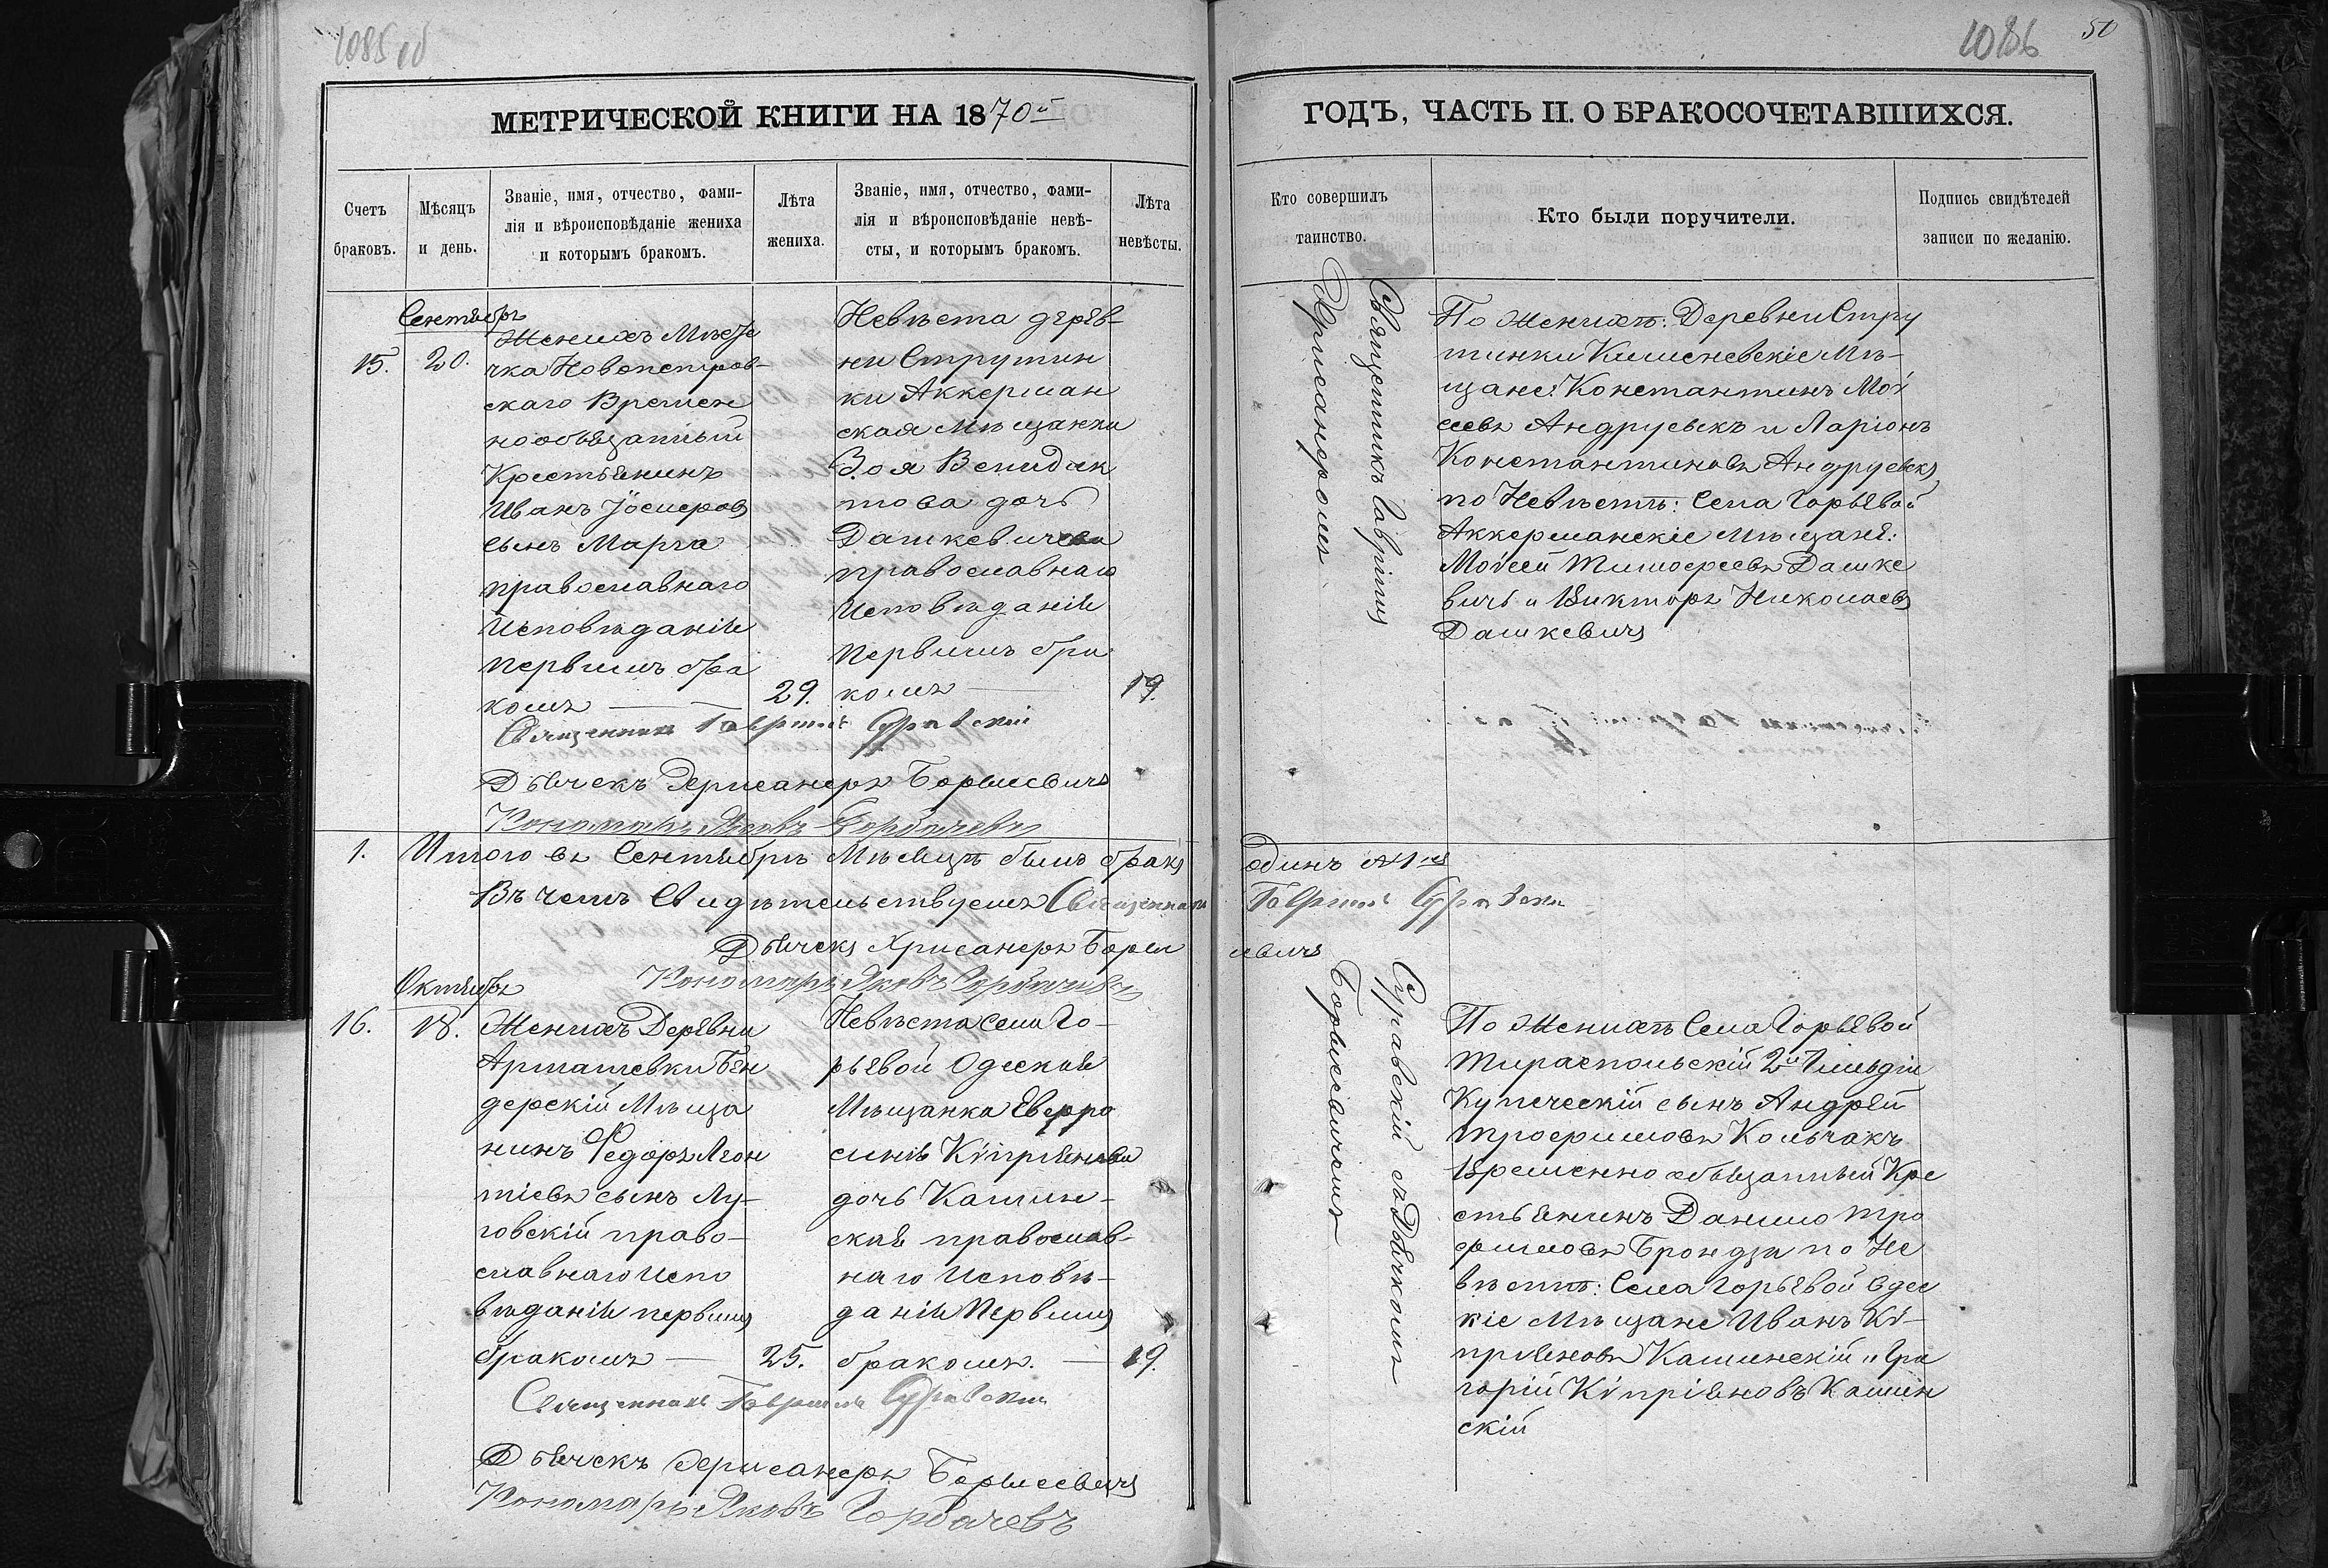 1085 об
1086
50
МЕТРИЧЕСКОЙ КНИГИ НА 1870й
ГОДЪ, ЧАСТЬ II. О БРАКОСОЧЕТАВШИХСЯ.
Счетъ
браковъ.
Мѣсяцъ
и день.
Званіе, имя, отчество, фами-
лія и вѣроисповѣданіе жениха
и которымъ бракомъ.
Лѣта
жениха.
Званіе, имя, отчество, фами-
лія и вѣроисповѣданіе невѣ-
сты, и которымъ бракомъ.
Лѣта
невѣсты.
Кто совершилъ
таинство.
Кто были поручители.
Подпись свидѣтелей
записи по желанію.
Сентябрь
15.
20.
Женихъ Мѣсте
чка Новопетров-
скаго Времен
нообязанный
Крестьянинъ
Иванъ Іосифовъ
сынъ Марга
православнаго
Исповѣданія
первымъ бра
комъ
29.
Невѣста дерев-
ни Струтин
ки Аккерман
ская Мѣщанка
Зоя Венидик
това дочь
Дашкевичева
православнаго
Исповѣданія
первымъ бра
комъ
19.
Священникъ Гавріилъ
Хрисанфомъ
По Женихѣ: Деревни Стру
тинки Кишеневскіе Мѣ-
щане: Константинъ Мой
сеевъ Андруевскъ и Ларіонъ
Константиновъ Андруевскъ
по Невѣстѣ: Села Горьевой
Аккерманскіе Мѣщане:
Мойсей Тимофеевъ Дашке
вичъ и Викторъ Николаевъ
Дашкевичъ
Священникъ Гавріилъ Суравскій
Дьячекъ Хрисанфъ Борисевичъ
Пономарь Яковъ Горбачевъ
1. Итого въ Сентябрѣ Мѣсяцѣ былъ бракъ
одинъ №1й
Въ чемъ Свидѣтельствуемъ Священникъ
Гавріилъ Суравскій
Дьячекъ Хрисанфъ Бори
севичъ
Пономарь Яковъ Горбачевъ
Октябрь
16.
18.
Женихъ Деревни
Армашевки Бен
дерскій Мѣща
нинъ Федоръ Леон
тіевъ сынъ Лу-
говскій право-
славнаго Испо
вѣданія первымъ
бракомъ
25.
Невѣста села Го-
рьевой Одеская
Мѣщанка Евфро
синія Кіпріянова
дочь Камин-
ская православ-
наго Исповѣ-
данія Первымъ
бракомъ.
19.
Суравскій съ Дьячкомъ
Борисевичемъ
По Женихѣ Села Горьевой
Тираспольскій 2й Гильдіи
Купеческій сынъ Андрей
Трофимовъ Колчакъ
Временно обязанный Кре
стьянинъ Данило Тро
фимовъ Брондза по Не
вѣстѣ: Села Горьевой Одес
кіе Мѣщане Иванъ Кі-
пріяновъ Каминскій и Гри
горій Кіпріяновъ Камин
скій
Священникъ Гавріилъ Суравскій
Дьячекъ Хрисанфъ Борисевичъ
Пономарь Яковъ Горбачевъ